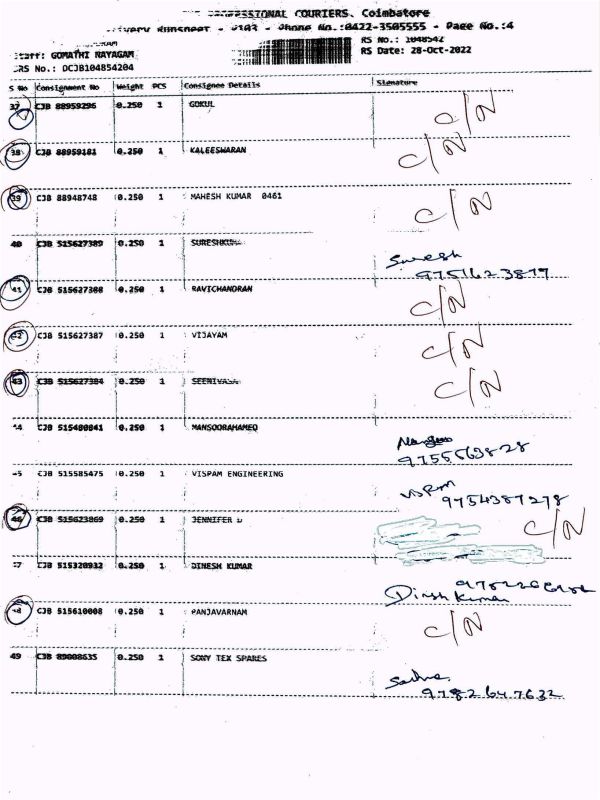 PROFESSIONAL COURIERS. Coimbatore
Phone No.:0422-3505555 - Page No.:4
Staff: GOMATHI NAYAGAM
RS No.: 1048542
DRS No.: DCJB104854204
RS Date: 28-Oct-2022
S No Consignment No Weight PCS Consignee Details Signature
37 CJB 88959296 0.250 1 GOKUL C/N
38 CJB 88959181 0.250 1 KALEESWARAN C/N
39 CJB 88948748 0.250 1 MAHESH KUMAR 0461 C/N
40 CJB 515627389 0.250 1 SURESHKUMA Suresh
9751623877
41 CJB 515627388 0.250 1 RAVICHANDRAN C/N
42 CJB 515627387 0.250 1 VIJAYAM C/N
43 CJB 515627384 0.250 1 SEENIVASA C/N
44 CJB 515480841 0.250 1 MANSOORAHAMED
9755563828
45 CJB 515585475 0.250 1 VISPAM ENGINEERING
9754387278
46 CJB 515623869 0.250 1 JENNIFER D C/N
47 CJB 515320932 0.250 1 DINESH KUMAR
Dinsh Kumar
48 CJB 515610008 0.250 1 PANJAVARNAM C/N
49 CJB 89008635 0.250 1 SONY TEX SPARES
9782647632